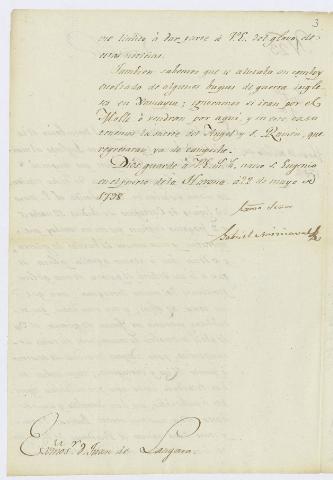 3
me limito à dar parte à V.E. del
estas noticias.
Tambien sabemos que se alistaba un comboy
escoltado de algunos buques de guerra ingle-
ses en Xamayca; ignoramos si iran por el
ò vendran por aqui, y en este caso
tenemos la sierra del Angel y S. Ramon, que
regresaron ya de campeche.
Dios guarde à V.E. m.s a.s navio S. Eugenio
en el puerto de la Havana à 2 de mayo de
1798.
Exmo Señor
Gabriel
Exmo S.r D. Juan de Langara.